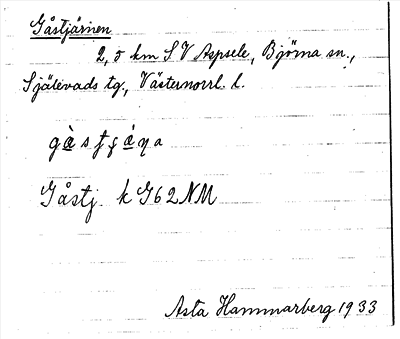 Gåstjärnen
2,5 km SV Aspsele, Björna sn.,
Själevads tg., Västernorrl. l.
Gåstj. k G62NM
Asta Hammarberg 1933